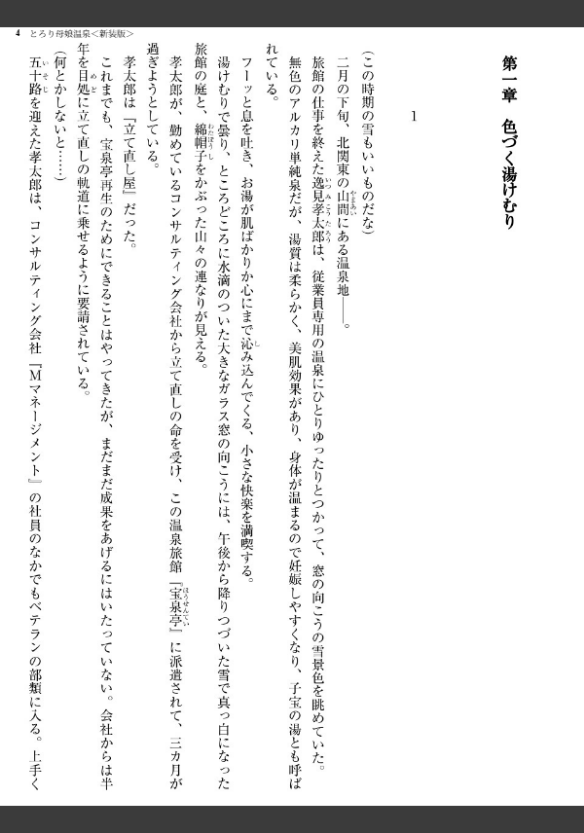 4 とろり母娘温泉＜新装版＞
第一章　色づく湯けむり
1
（この時期の雪もいいものだな）
二月の下旬、北関東の山間にある温泉地――。
旅館の仕事を終えた逸見孝太郎は、従業員専用の温泉にひとりゆったりとつかって、窓の向こうの雪景色を眺めていた。
無色のアルカリ単純泉だが、湯質は柔らかく、美肌効果があり、身体が温まるので妊娠しやすくなり、子宝の湯とも呼ば
れている。
フーッと息を吐き、お湯が肌ばかりか心にまで沁み込んでくる、小さな快楽を満喫する。
湯けむりで曇り、ところどころに水滴のついた大きなガラス窓の向こうには、午後から降りつづいた雪で真っ白になった
旅館の庭と、綿帽子をかぶった山々の連なりが見える。
孝太郎が、勤めているコンサルティング会社から立て直しの命を受け、この温泉旅館『宝泉亭』に派遣されて、三カ月が
過ぎようとしている。
孝太郎は『立て直し屋』だった。
これまでも、宝泉亭再生のためにできることはやってきたが、まだまだ成果をあげるにはいたっていない。会社からは半
年を目処に立て直しの軌道に乗せるように要請されている。
（何とかしないと……）
五十路を迎えた孝太郎は、コンサルティング会社『Ｍマネージメント』の社員のなかでもベテランの部類に入る。上手く